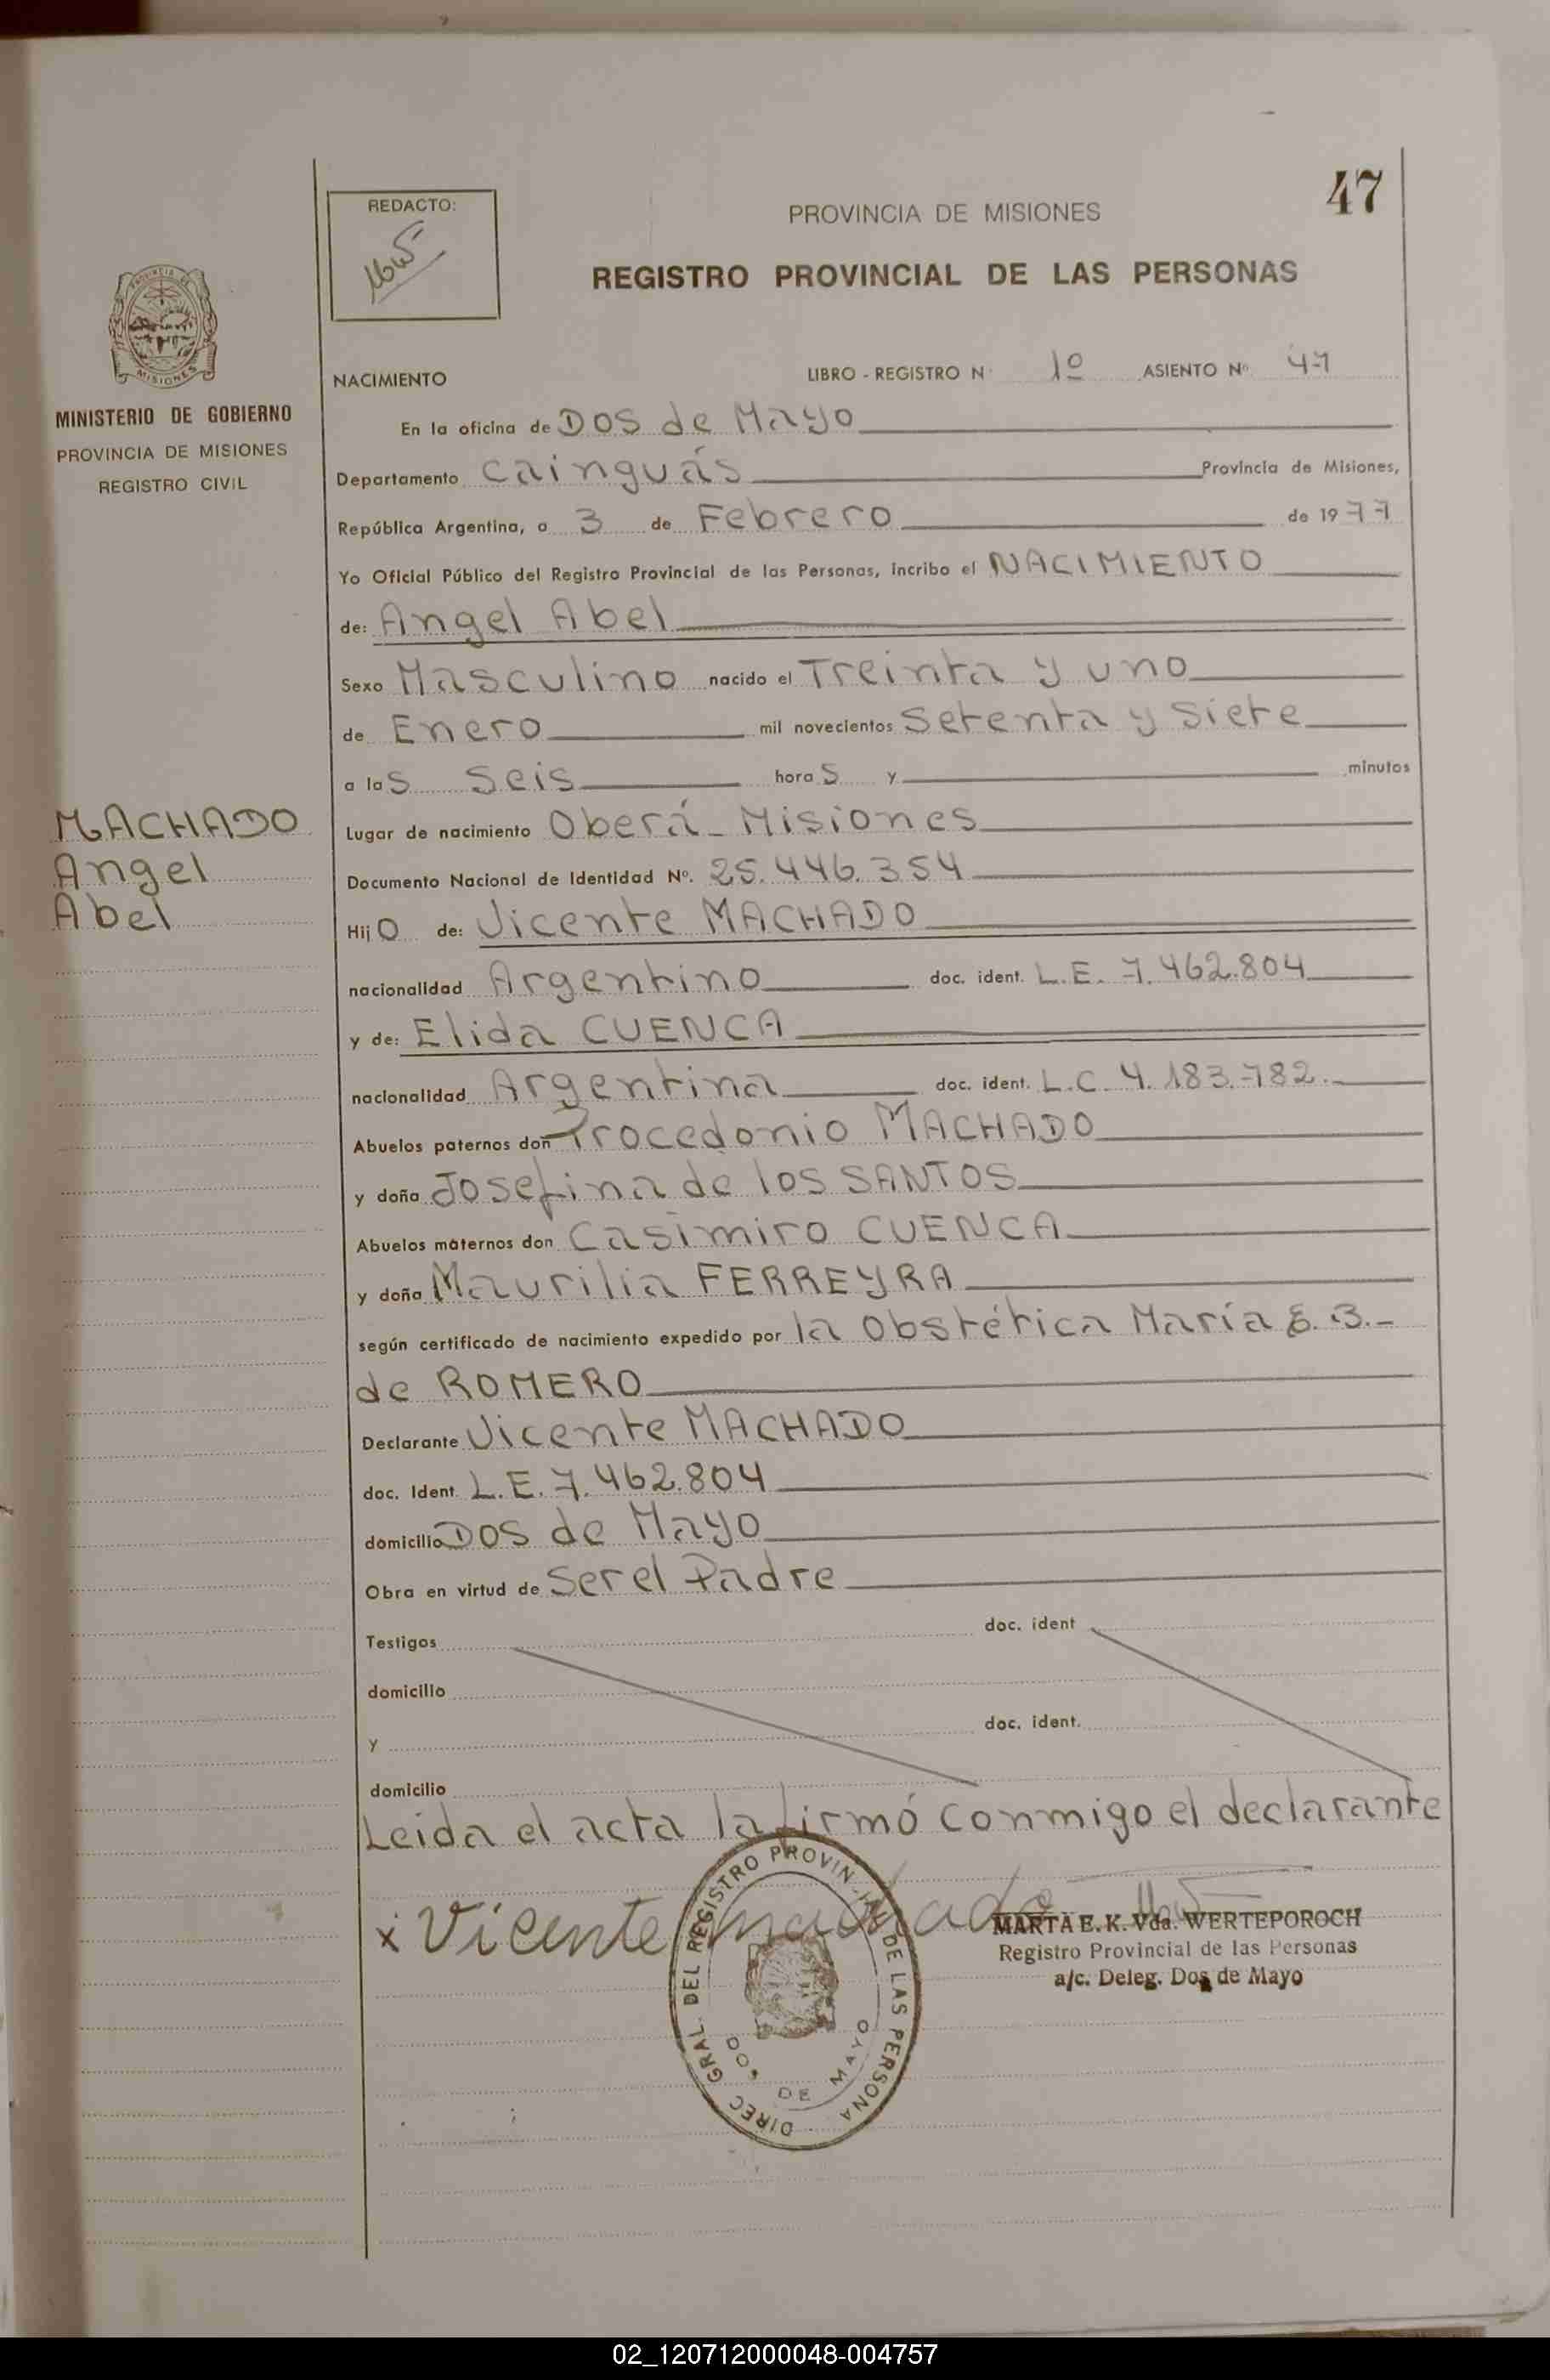 47
REDACTO:
PROVINCIA DE MISIONES
REGISTRO PROVINCIAL DE LAS PERSONAS
PROVINCIA DE
MISIONES
MINISTERIO DE GOBIERNO
PROVINCIA DE MISIONES
REGISTRO CIVIL
NACIMIENTO LIBRO - REGISTRO N 1º ASIENTO Nº 47
En la oficina de Dos de Mayo
Departamento Cainguás Provincia de Misiones,
República Argentina, a 3 de Febrero de 1977
Yo Oficial Público del Registro Provincial de las Personas, incribo el NACIMIENTO
de: Angel Abel
Sexo Masculino nacido el Treinta y uno
de Enero mil novecientos Setenta y Siete
a las Seis horas y minutos
MACHADO
Angel
Abel
Lugar de nacimiento Oberá - Misiones
Documento Nacional de Identidad Nº. 25.446.354
Hijo de: Vicente MACHADO
nacionalidad Argentino doc. ident. L.E. 7.462.804
y de: Elida CUENCA
nacionalidad Argentina doc. ident. L.C. 4.183.782.
Abuelos paternos don Procedonio MACHADO
y doña Josefina de los SANTOS
Abuelos maternos don Casimiro CUENCA
y doña Maurilia FERREYRA
según certificado de nacimiento expedido por la Obstétrica María E. B. -
de ROMERO
Declarante Vicente MACHADO
doc. Ident. L.E. 7.462.804
domicilio Dos de Mayo
Obra en virtud de Ser el Padre
Testigos doc. ident
domicilio
y doc. ident.
domicilio
Leida el acta la firmó conmigo el declarante
x Vicente machado
MARTA E. K. Vda. WERTEPOROCH
Registro Provincial de las Personas
a/c. Deleg. Dos de Mayo
DIREC GRAL. DEL REGISTRO PROVIN DE LAS PERSONA
DOS DE MAYO
02_120712000048-004757